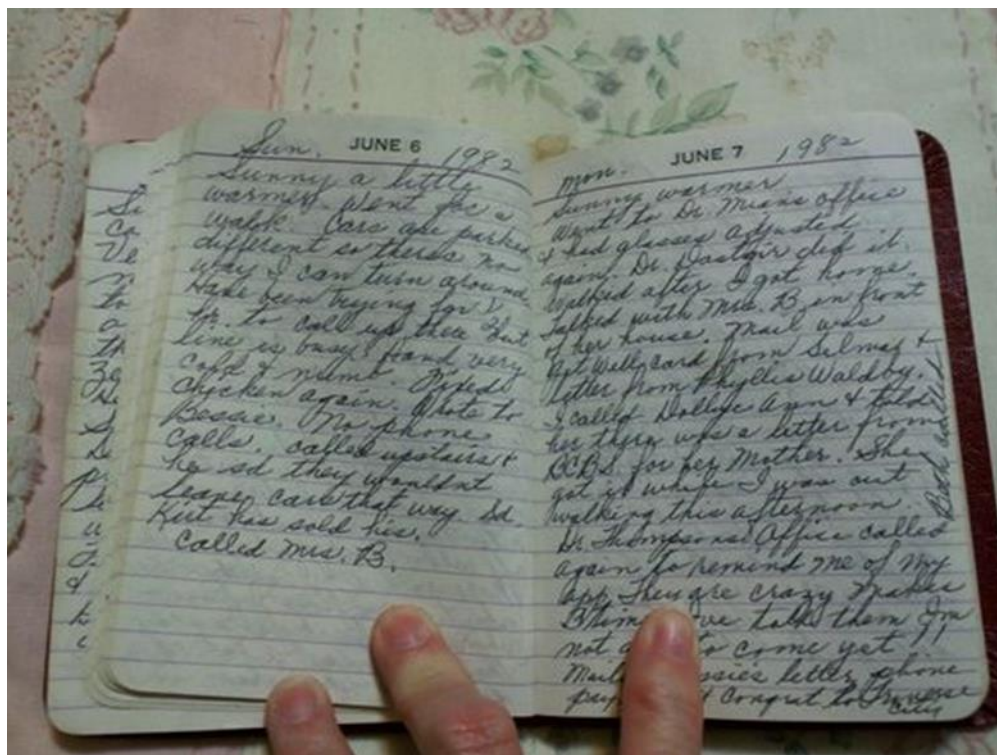 Sun. JUNE 6 1982
Sunny a little
warmer. Went for a
walk. Cars are parked
different so theres no
way I can turn around
Have been trying for
hr. to call up there but
line is busy. Hand very
cold & numb. Fixed
chicken again. Wrote to
Bessie. No phone
calls. called upstairs &
he sd they wouldnt
leave cars that way. Sd.
Kurt has sold his.
Called Mrs. B.
Mon. JUNE 7 1982
Sunny warmer
Went to Dr. Means office
& had glasses adjusted
again. Dr. Dastgir did it.
Walked after I got home.
Talked with Mrs. B. in front
of her house. Mail was
get well card from Selmas &
letter from Phyllis Waldby.
I called Dollie Ann & told
her there was a letter from
BCBS. for her Mother. She
got it while I was out
walking this afternoon
Dr. Thompsons Office called
again to remind me of my
app. They are crazy makes
time ve told them Im
not to come yet !!
Mail ssies letter, phone
& Congrat to Traverse
City
Ca
Ve
to
a